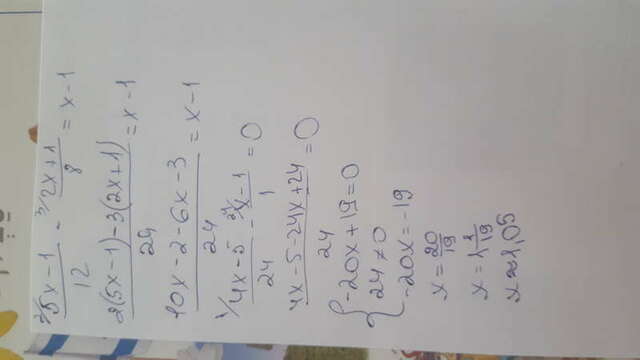 ²/5x-1/12 - ³/2x+1/8 = x-1
2(5x-1)-3(2x+1)/24 = x-1
10x-2-6x-3/24 = x-1
¹/4x-5/24 - ²⁴/x-1/1 = 0
4x-5-24x+24/24 = 0
{-20x+19=0
24≠0
-20x=-19
x=20/19
x=1 1/19
x≈1,05